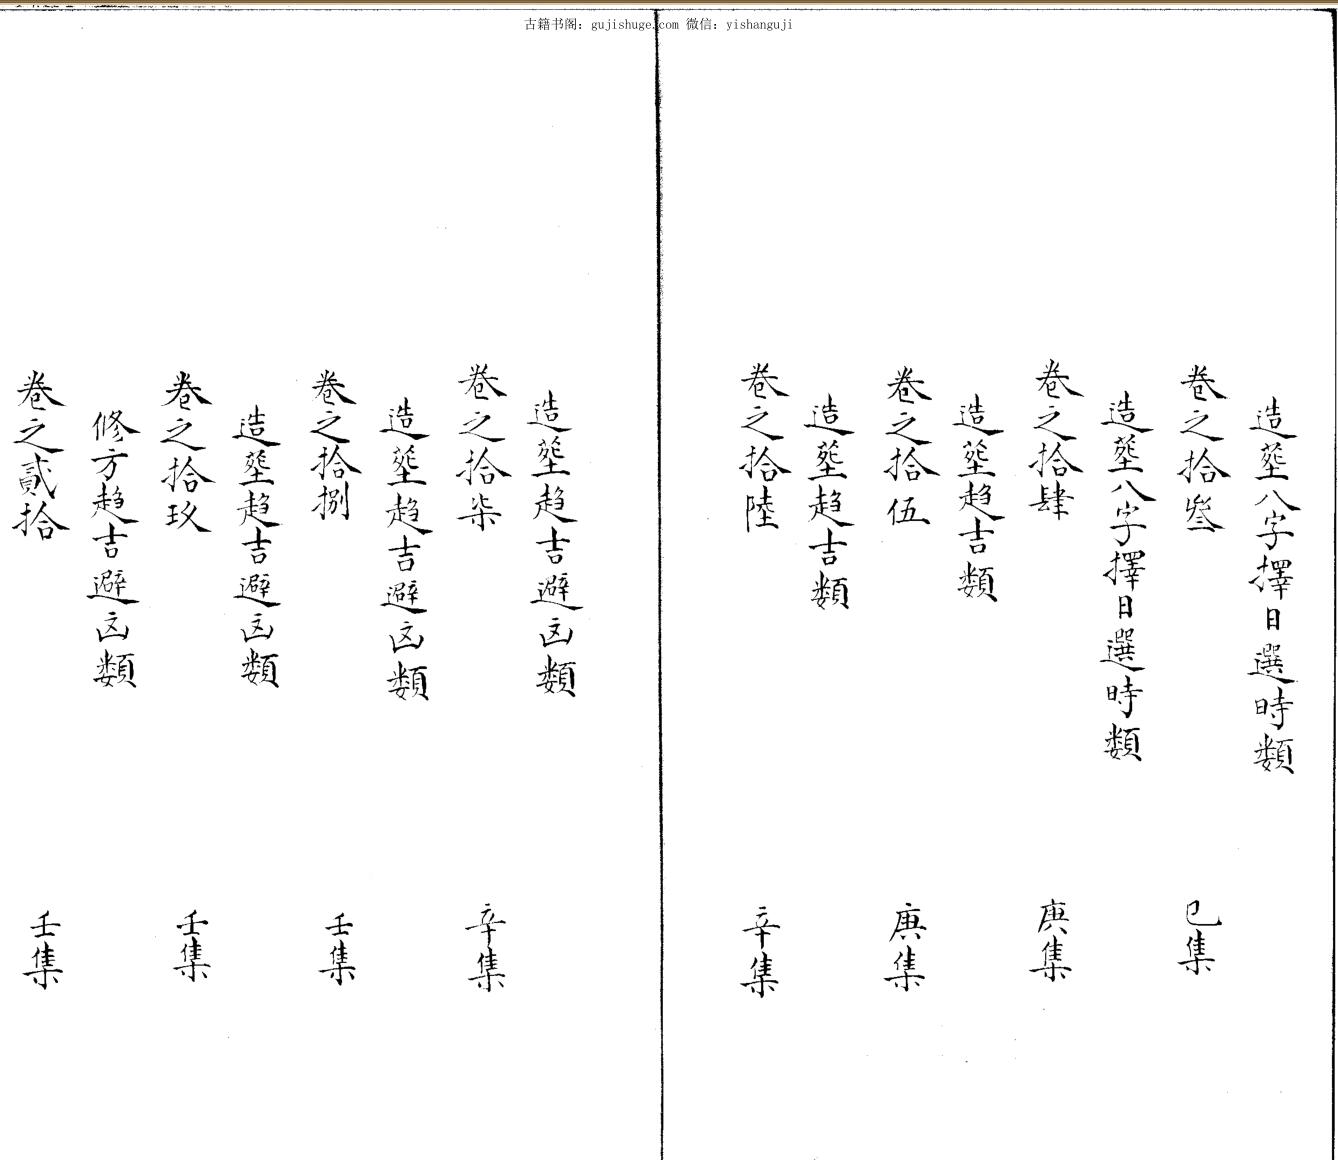 古籍书阁：gujishuge.com 微信：yishanguji
造塟八字擇日選時類
卷之拾叄 巳集
造塟八字擇日選時類
卷之拾肆 庚集
造塟趋吉類
卷之拾伍 庚集
造塟趋吉類
卷之拾陸 辛集
造塟趋吉避㐫類
卷之拾柒 辛集
造塟趋吉避㐫類
卷之拾捌 壬集
造塟趋吉避㐫類
卷之拾玖 壬集
修方趋吉避㐫類
卷之貳拾 壬集